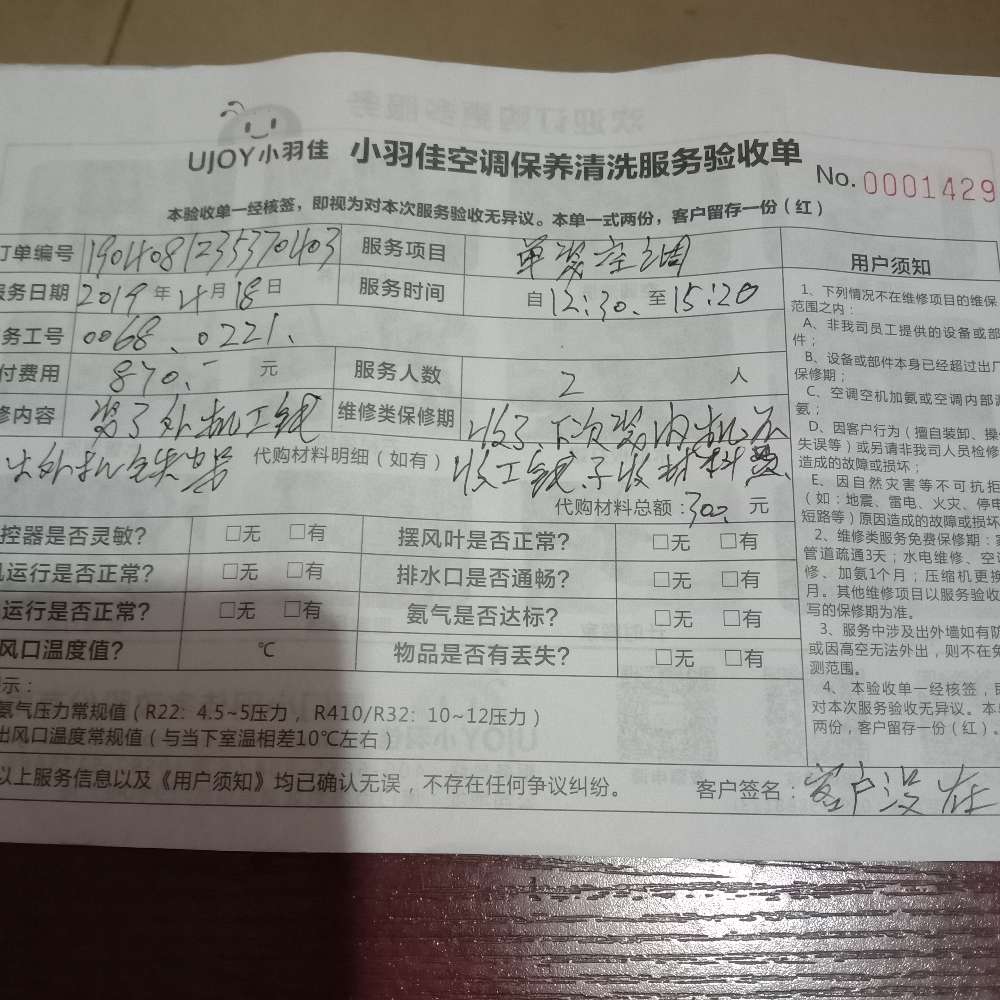 UJOY小羽佳 小羽佳空调保养清洗服务验收单 No. 0001429
本验收单一经核签，即视为对本次服务验收无异议。本单一式两份，客户留存一份（红）
订单编号 1904081235370403 服务项目 单装空调
服务日期 2019年4月18日 服务时间 自12:30.至15:20
务工号 0068、0221、
付费用 870.- 元 服务人数 2 人
修内容 装了外机工钱 维修类保修期 收了、下次装内机不
外机铁架 代购材料明细（如有） 收工钱、只收材料费
代购材料总额：300. 元
控器是否灵敏？ □无 □有 摆风叶是否正常？ □无 □有
机运行是否正常？ □无 □有 排水口是否通畅？ □无 □有
运行是否正常？ □无 □有 氨气是否达标？ □无 □有
风口温度值？ ℃ 物品是否有丢失？ □无 □有
示：
氨气压力常规值（R22：4.5~5压力，R410/R32：10~12压力）
出风口温度常规值（与当下室温相差10℃左右）
以上服务信息以及《用户须知》均已确认无误，不存在任何争议纠纷。 客户签名：客户没在
用户须知
1、下列情况不在维修项目的维保
范围之内：
A、非我司员工提供的设备或部
件；
B、设备或部件本身已经超过出厂
保修期；
C、空调空机加氨或空调内部漏
氨；
D、因客户行为（擅自装卸、操作
失误等）或另请非我司人员检修
造成的故障或损坏；
E、因自然灾害等不可抗拒
（如：地震、雷电、火灾、停电
短路等）原因造成的故障或损坏
2、维修类服务免费保修期：家
管道疏通3天；水电维修、空调
修、加氨1个月；压缩机更换
月。其他维修项目以服务验收
写的保修期为准。
3、服务中涉及出外墙如有防
或因高空无法外出，则不在免
测范围。
4、本验收单一经核签，即
对本次服务验收无异议。本单
两份，客户留存一份（红）。